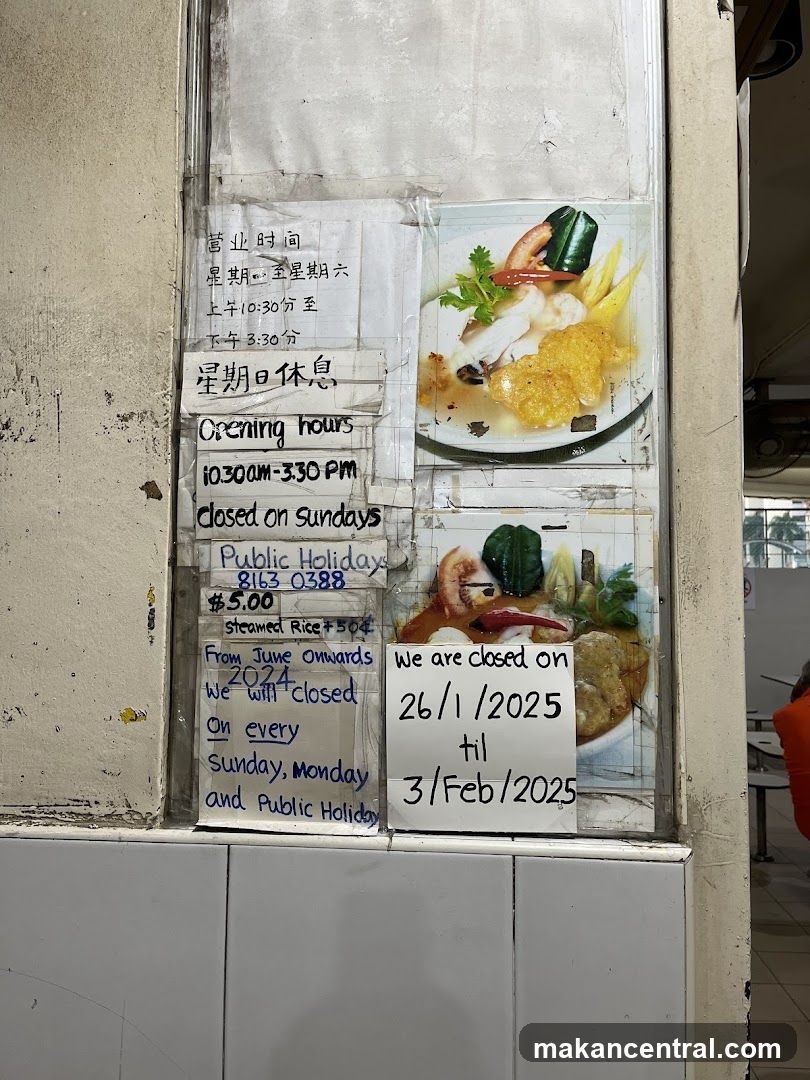 营业时间
星期一至星期六
上午10:30分至
下午3:30分
星期日休息
Opening hours
10.30am-3.30 PM
closed on Sundays
Public Holidays
8163 0388
$5.00
steamed Rice +50¢
From June Onwards
2024
We will closed
on every
Sunday, Monday
and Public Holiday
We are closed on
26/1/2025
til
3/Feb/2025
makancentral.com